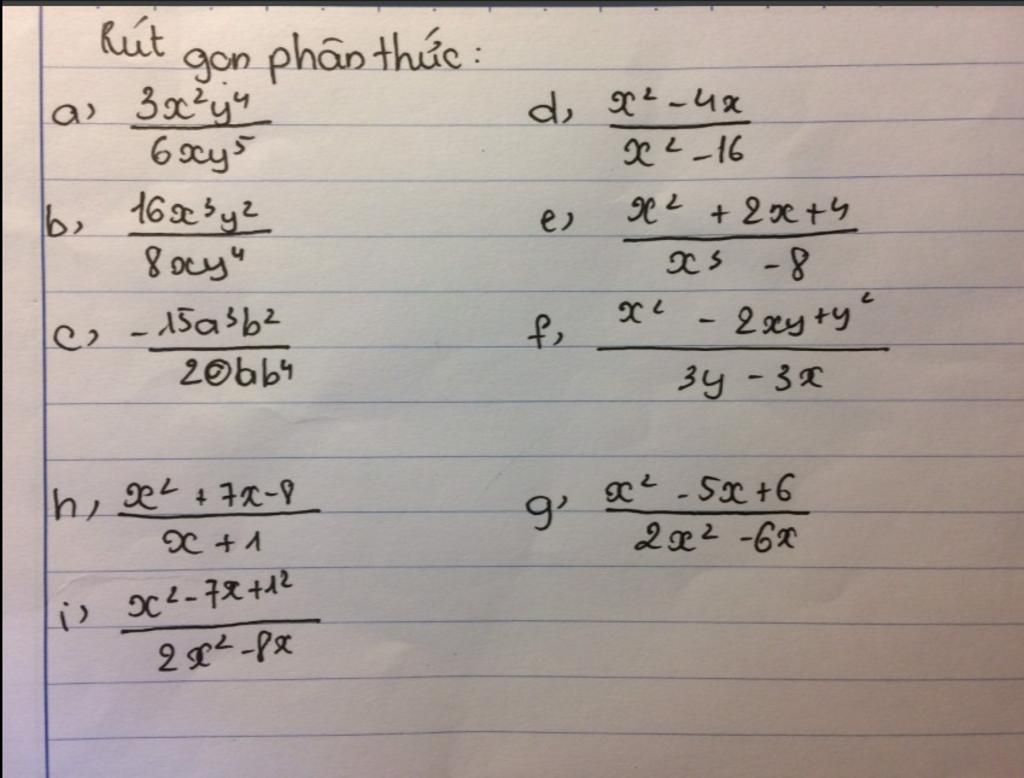 Rút gọn phân thức:
a, 3x²y⁴ / 6xy⁵
d, x² - 4x / x² - 16
b, 16x³y² / 8xy⁴
e, x² + 2x + 4 / x³ - 8
c, -15a³b² / 20ab⁴
f, x² - 2xy + y² / 3y - 3x
h, x² + 7x - 8 / x + 1
g, x² - 5x + 6 / 2x² - 6x
i, x² - 7x + 12 / 2x² - 8x